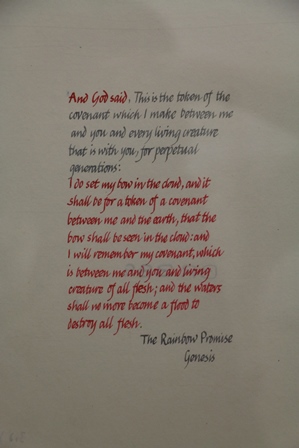 And God said, This is the token of the
covenant which I make between me
and you and every living creature
that is with you, for perpetual
generations:
I do set my bow in the cloud, and it
shall be for a token of a covenant
between me and the earth, that the
bow shall be seen in the cloud: and
I will remember my covenant, which
is between me and you and living
creature of all flesh; and the waters
shall no more become a flood to
destroy all flesh.
The Rainbow Promise
Genesis